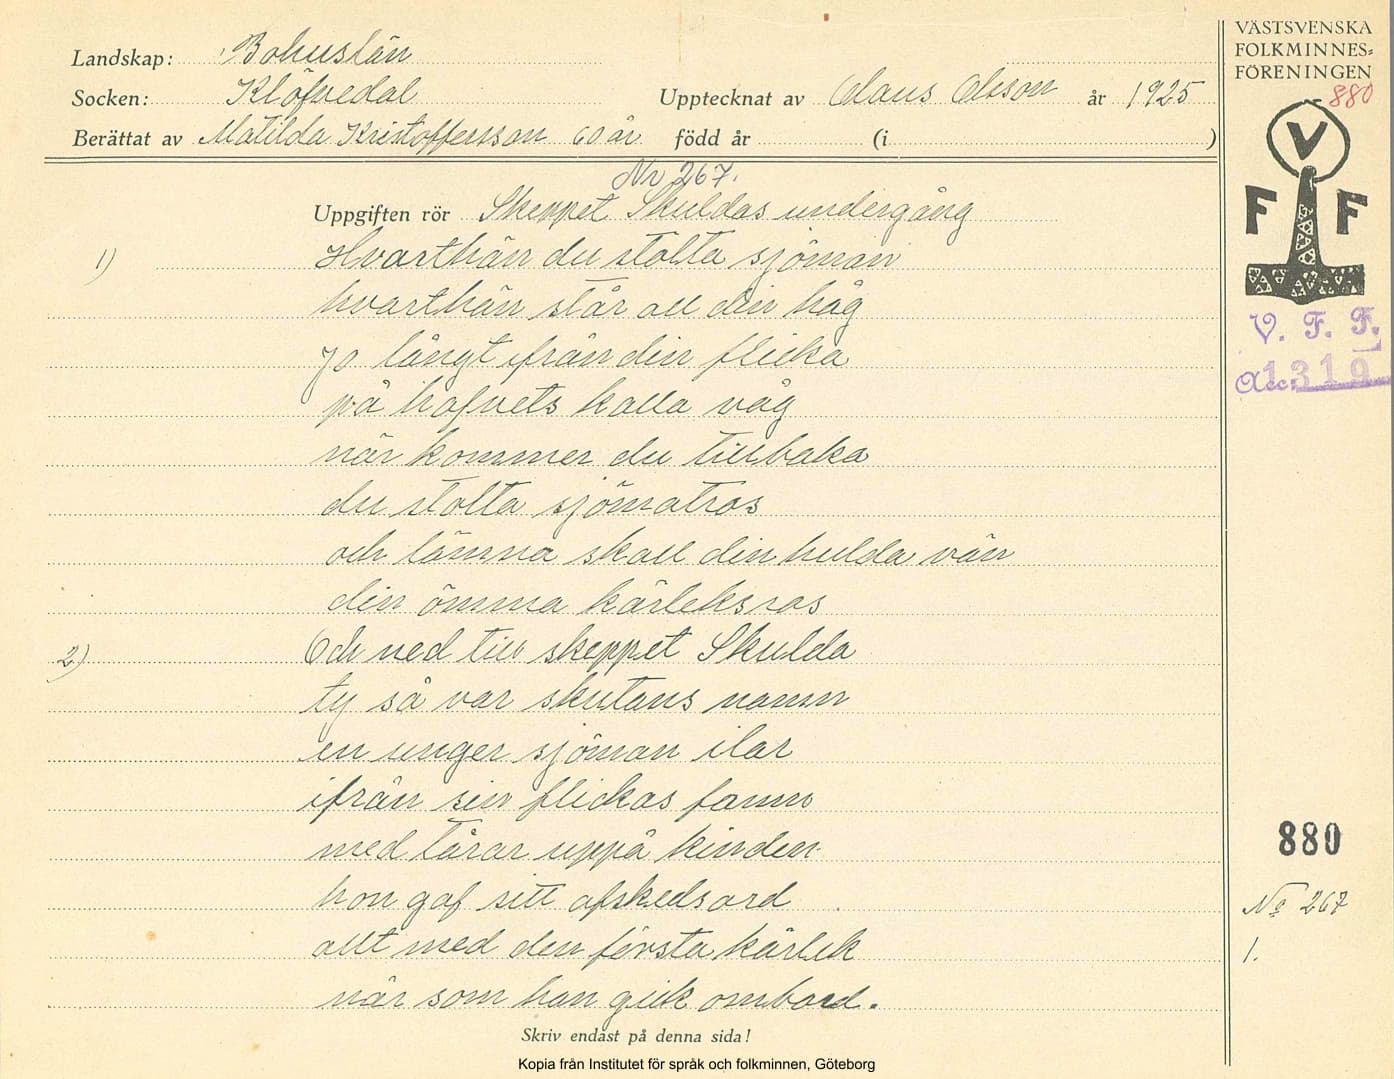 Landskap: Bohuslän
Socken: Klöfvedal
Upptecknat av Claus Olsson år 1925
Berättat av Matilda Kristoffersson 60 år född år (i )
Nr 267.
Uppgiften rör Skeppet Skuldas undergång
1) Hvarthän du stolta sjöman
hvarthän står all din håg
jo långt ifrån din flicka
på hafvets kalla våg
när kommer du tillbaka
du stolta sjömatros
och lämna skall din hulda vän
din ömma kärleksros
2) Och ned till skeppet Skulda
ty så var skutans namn
en unger sjöman ilar
ifrån sin flickas famn
med tårar uppå kinden
hon gaf sitt afskedsord
allt med den första kärlek
när som han gick ombord.
Skriv endast på denna sida!
Kopia från Institutet för språk och folkminnen, Göteborg
VÄSTSVENSKA
FOLKMINNES=
FÖRENINGEN
880
V
F F
V. F. F.
Acc: 1319
880
No 267
1.